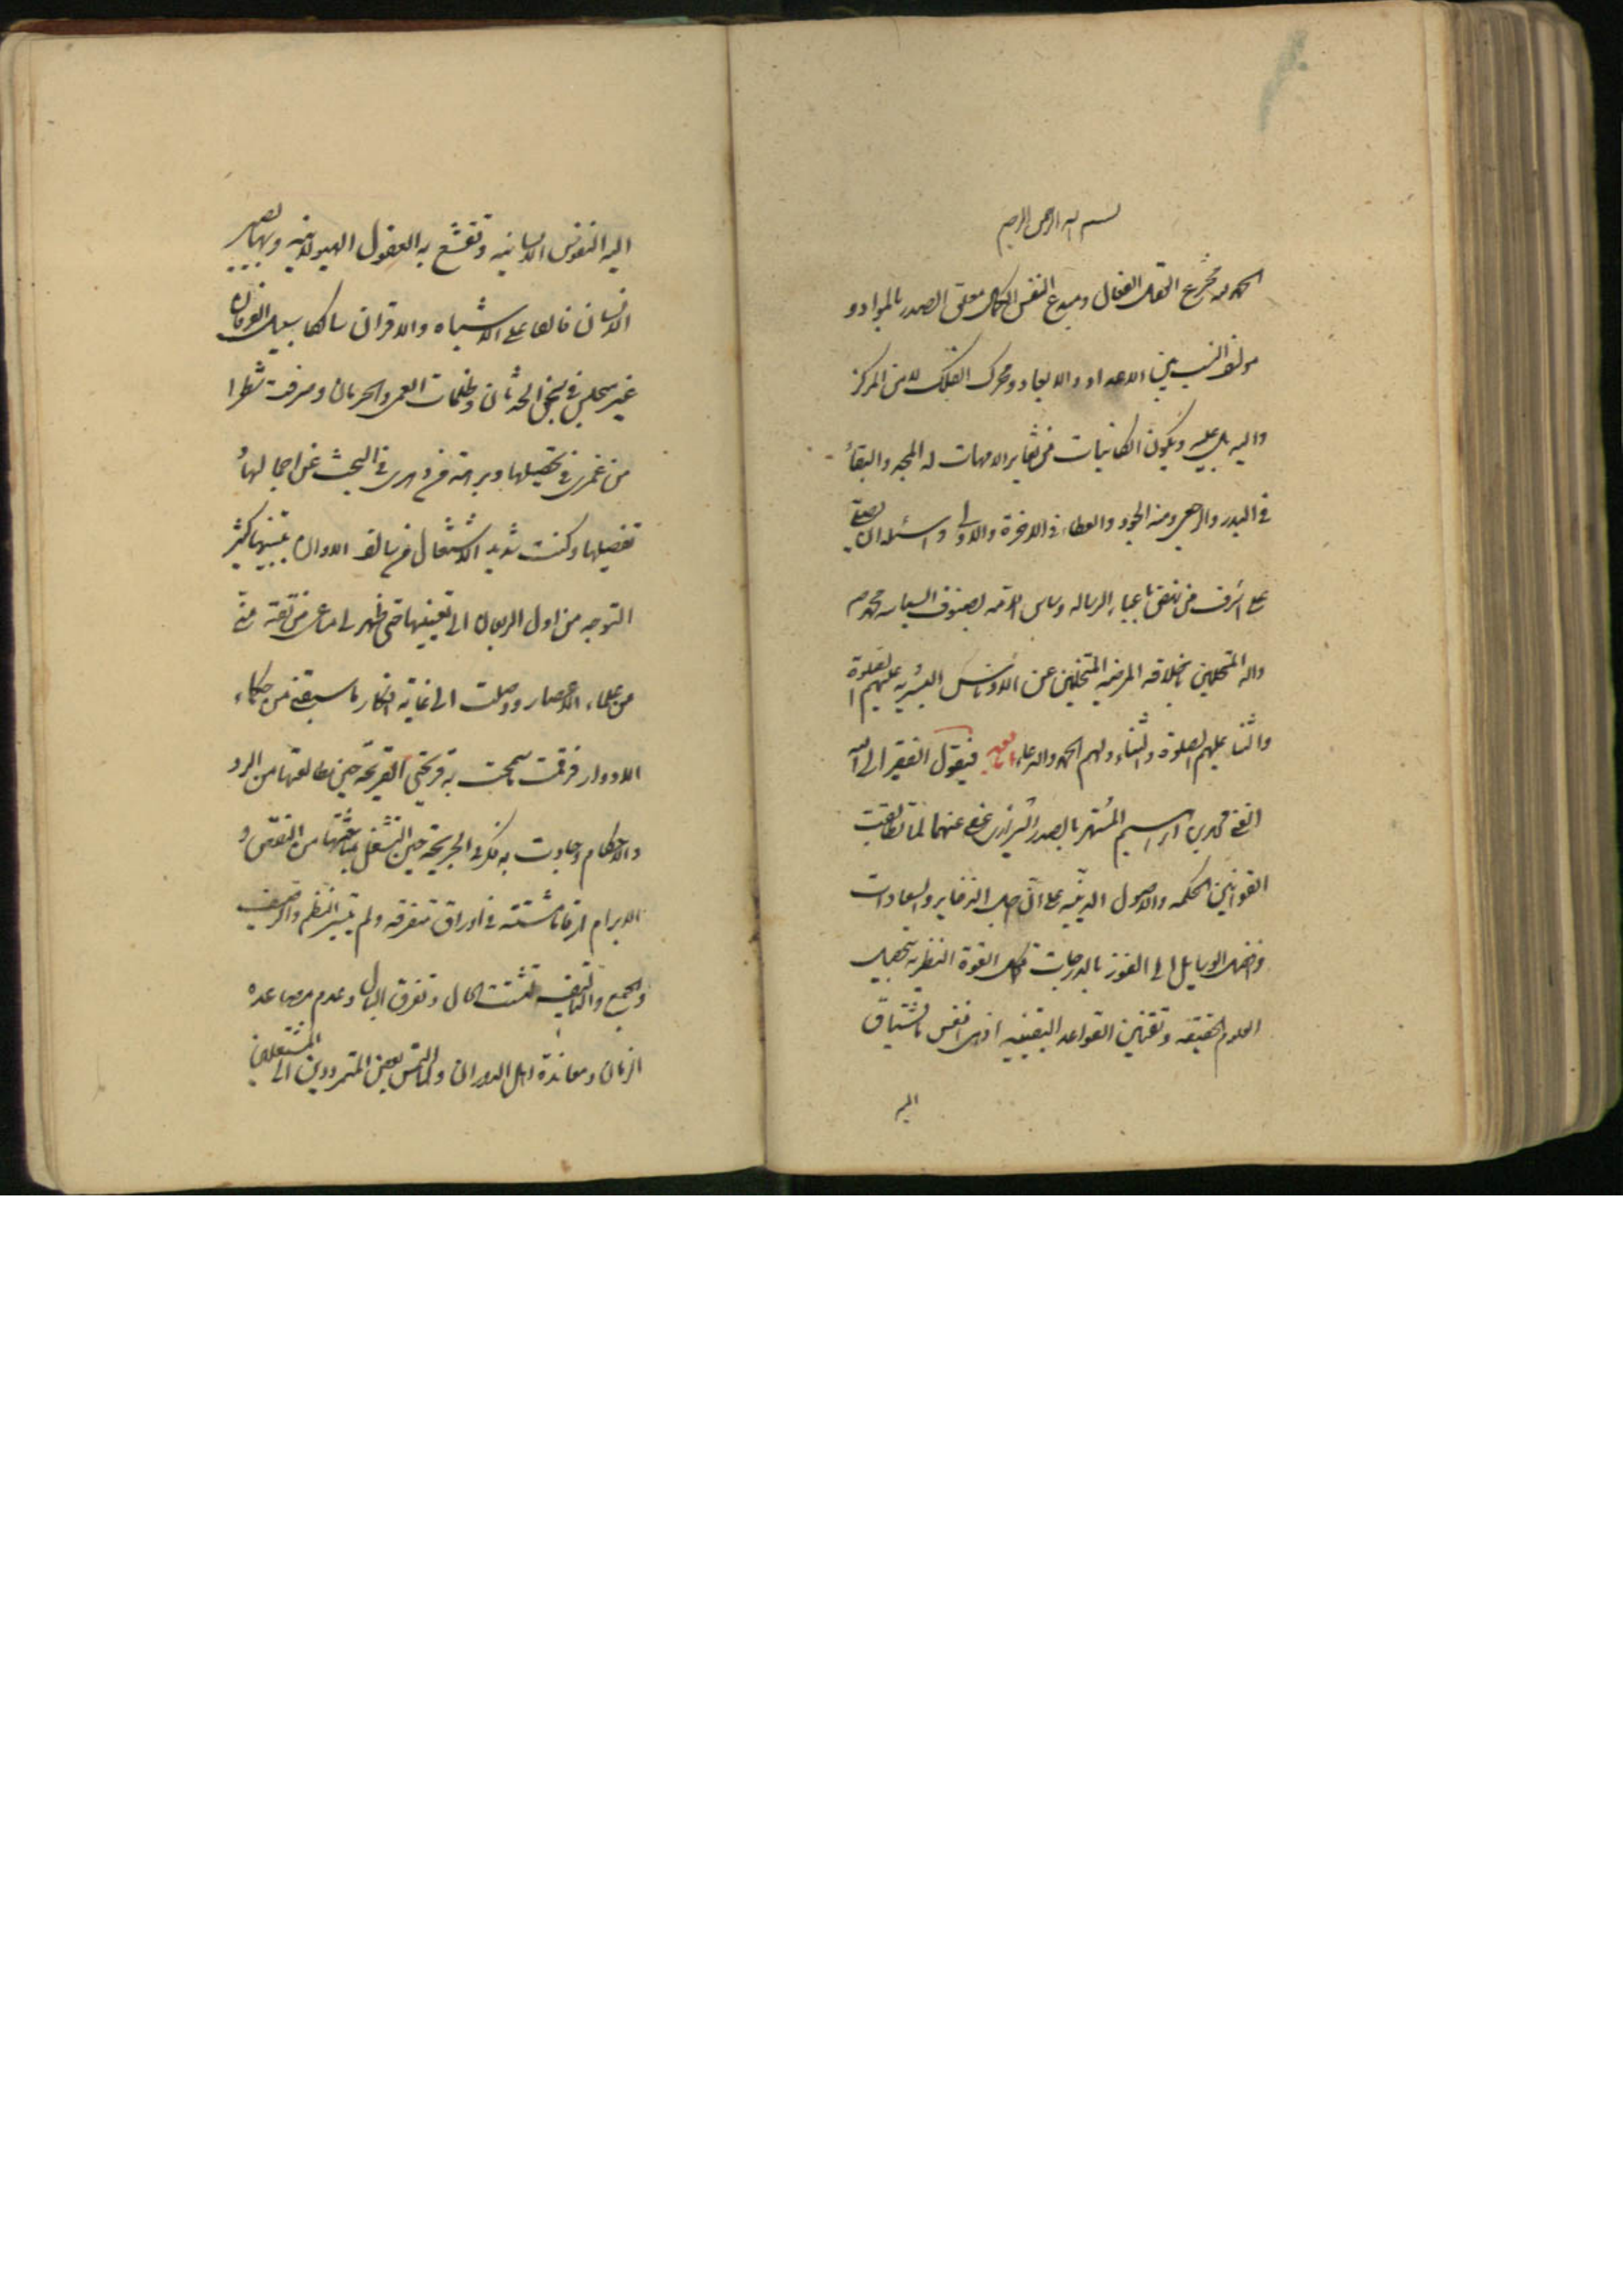 بسم الله الرحمن الرحيم
الحمد لله مخترع العقل الفعال ومبدع النفس الكمال معلق الصور بالمواد و
مولف النسب بين الاعداد والابعاد ومحرك الفلك لا من المركز
واليه بل عليه ويكون الكائنات من تغاير الامهات له المجد والبقاء
في البدء والرجعى ومنه الجود والعطاء في الاخرة والاولى واسئله ان يصلي
على اشرف من باعباء الرساله وساس الامه بصنوف السياسه محمد
واله المتحلين باخلاقه المرضيه المتخلين عن الادناس البشريه عليهم الصلوة
والثنا عليهم الصلوة والثناء ولهم الحمد والدعاء فيقول الفقير الى الله
الغني محمد بن ابراهيم المشتهر بالصدر الشيرازي عفي عنهما لما تطابقت
القوانين الحكمه والاصول الدينيه على ان اجل الذخاير والسعادات
وافضل الوسايل الى الفوز بالدرجات تكميل القوة النظريه بتحصيل
العلوم الحقيقيه وتقنين القواعد اليقينيه اذ هي انفس ما تشتاق
اليه
اليه النفوس الانسانيه وتقشع به العقول الهيولانيه وبها يصير
الانسان فائقا على الاشباه والاقران سالكا سبيل العرفان
غير مسجلين في سجن الحدثان وظلمات العمى والحرمان وصرفت شطرا
من عمري في تحصيلها وبرهة من دهري في البحث عن اجمالها و
تفصيلها وكنت شديد الاشتغال في سالف الاوان بتبينها كثير
التوجه من اول الريعان الى تعيينها حتى ظهر لي ما عز من تقدمني
من علماء الاعصار ووصلت الى غاية افكار ما سبقني من حكماء
الادوار فرقمت ما سمحت به قريحتي القريحه حين مطالعتها من الرد
والاحكام وجادت به فكرتي الجريحة حين الشغل بمباحثتها من النقض و
الابرام ارقاما مشتته في اوراق متفرقه ولم يتيسر النظم والترصيف
والجمع والتاليف لتشتت الحال وتفرق البال وعدم مساعده
الزمان ومعاندة اهل الدوران والتمس بعض المترددين الي المشتغلين